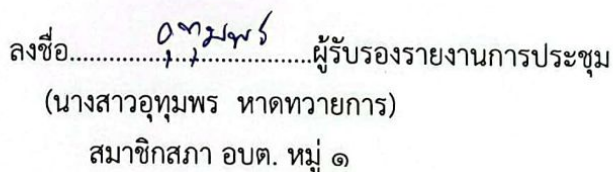 ลงชื่อ.............อุทุมพร.............ผู้รับรองรายงานการประชุม
(นางสาวอุทุมพร หาดทวายการ)
สมาชิกสภา อบต. หมู่ ๑